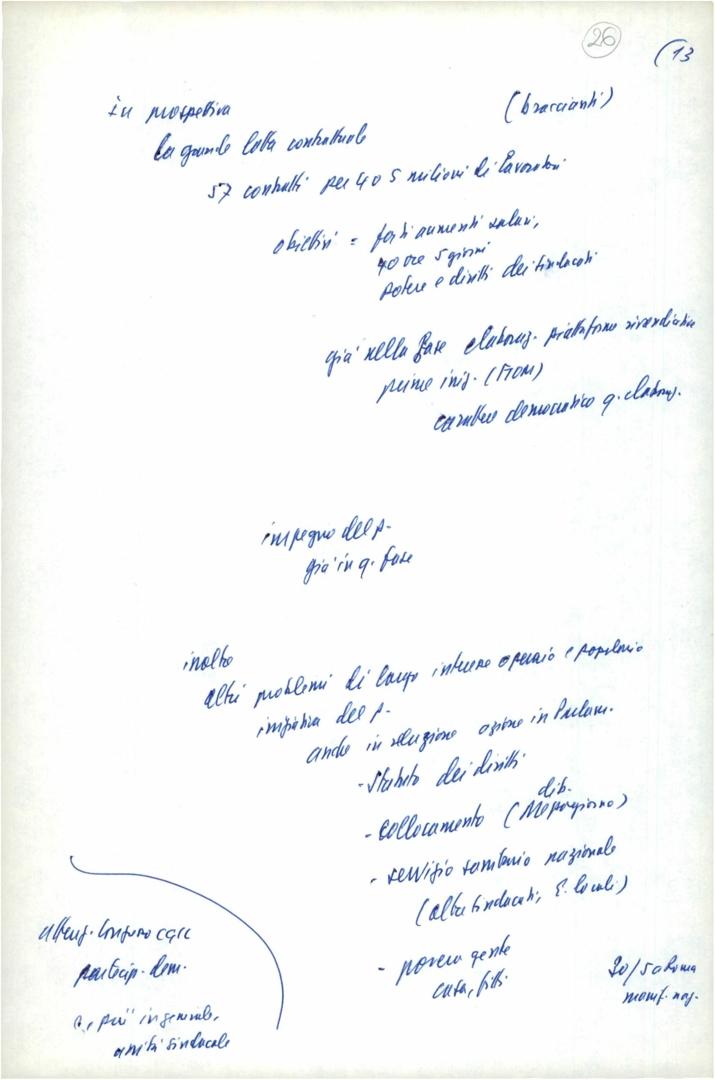 26
(13
in prospettiva (braccianti)
la grande lotta contrattuale
57 contratti per 4 o 5 milioni di lavoratori
obiettivi = forti aumenti salari,
40 ore 5 giorni
potere e diritti dei sindacati
già nella fase elaboraz. piattaforme rivendicative
prime iniz. (FIOM)
carattere democratico q. elaboraz.
impegno del p.
già in q. fase
inoltre
altri problemi di largo interesse operaio e popolare
iniziativa del p.
anche in relazione azione in Parlam.
- Statuto dei diritti
dib.
- collocamento (Mezzogiorno)
- servizio sanitario nazionale
(altre sindacati, E. locali)
- povera gente
casa, fitti
20/5 a Roma
manif. naz.
attenz. Congresso CGIL
partecip. dem.
più in generale,
unità sindacale